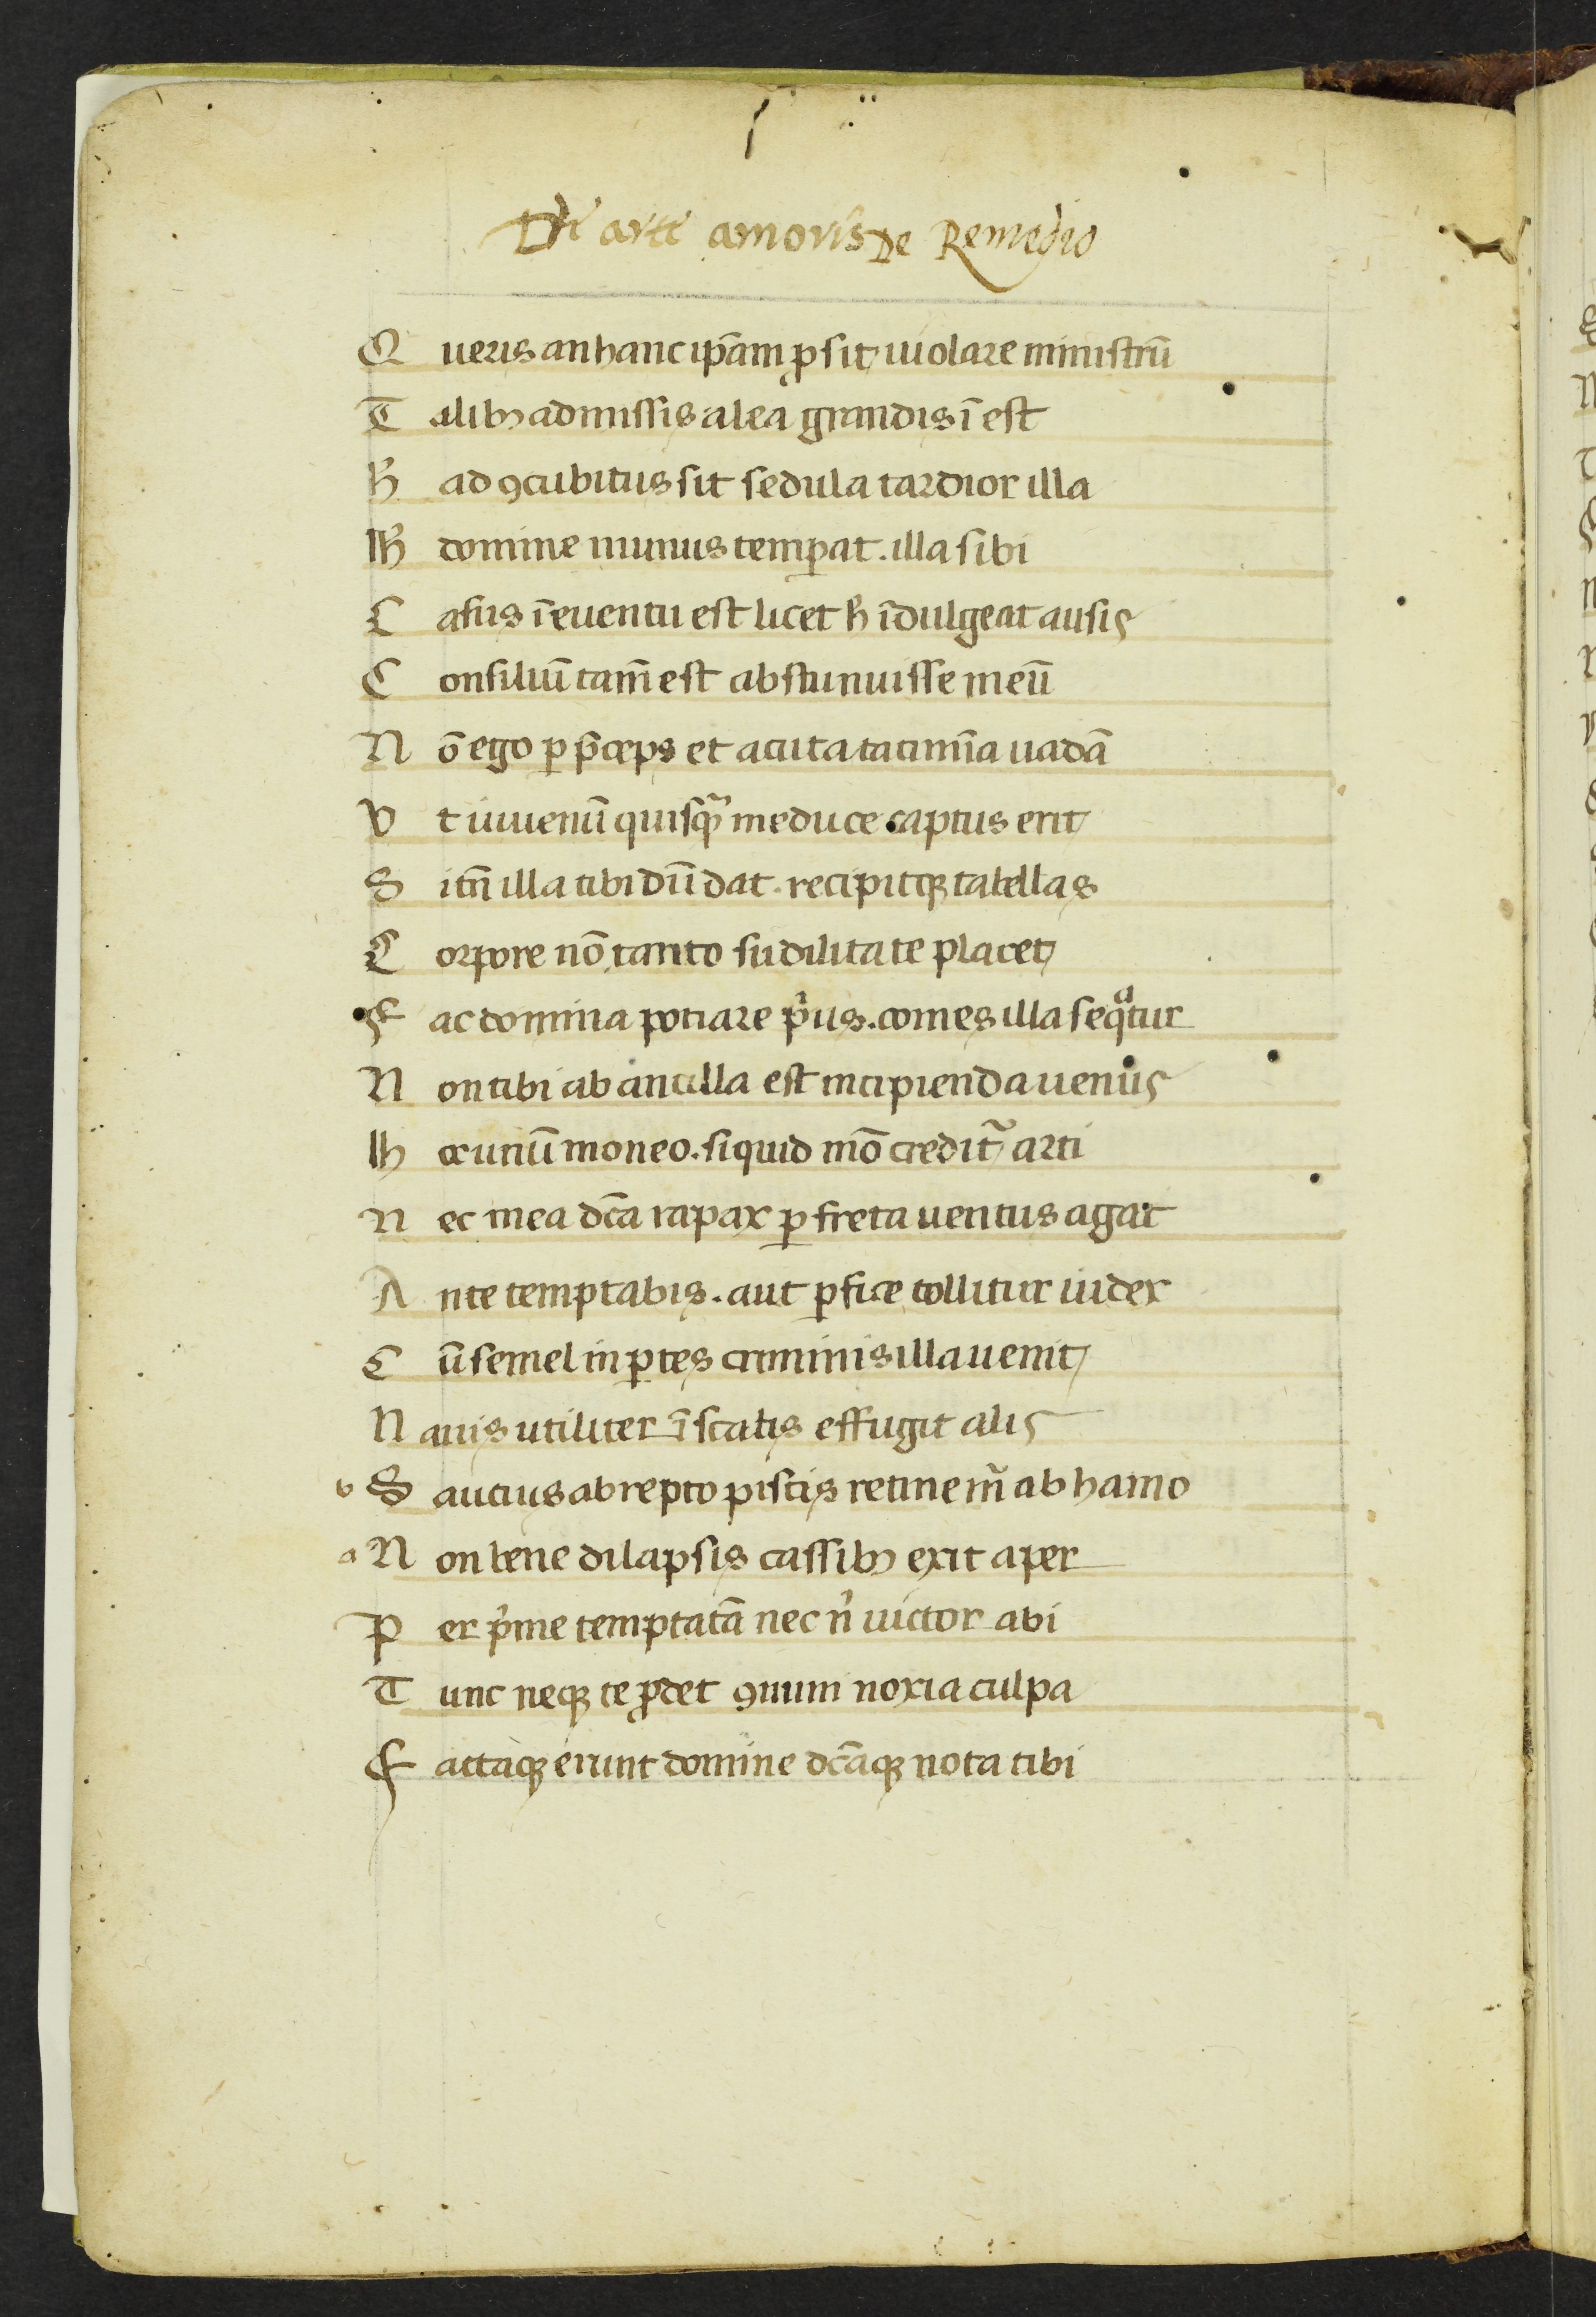 Di arti amoris De Remedio
Q ueris an hanc ip̄am ꝓsit uiolare ministrū
T alibꝫ admissis alea grandis ī est
H̄ ad ꝯcubitus sit sedula tardior illa
H̄ domine munus temꝑat . illa sibi
C asus ī euentu est licet h̄ īdulgeat ausis
C onsiliū tam̄ est abstinuisse meū
N ō ego ꝑ p̄ceps et acuta cacumīa uadā
V t iuuenū quisqᷓ me duce captus erit
S i tn̄ illa tibi dū dat . recipitqꝫ tabellas
C orpore nō tanto sudilitate placet
F ac domina potiare pͥus . comes illa seqᷓtur
N on tibi ab ancilla est incipienda uenus
H oc unū moneo . siquid mō creditᷣ arti
N ec mea dc̄a rapax ꝑ freta uentus agat
A nte temptabis . aut ꝑfice tollitur iudex
C ū semel in ꝑtes criminis illa uenit
N auis utiliter īscatis effugit alis
b S aucius abrepto piscis retinem̄ ab hamo
a N on bene dilapsis cassibꝫ exit aper
P er pͥme temptatā nec nͥ uictor abi
T unc neqꝫ te ꝓdet ꝯmuni noxia culpa
F actaqꝫ erunt domine dc̄aqꝫ nota tibi